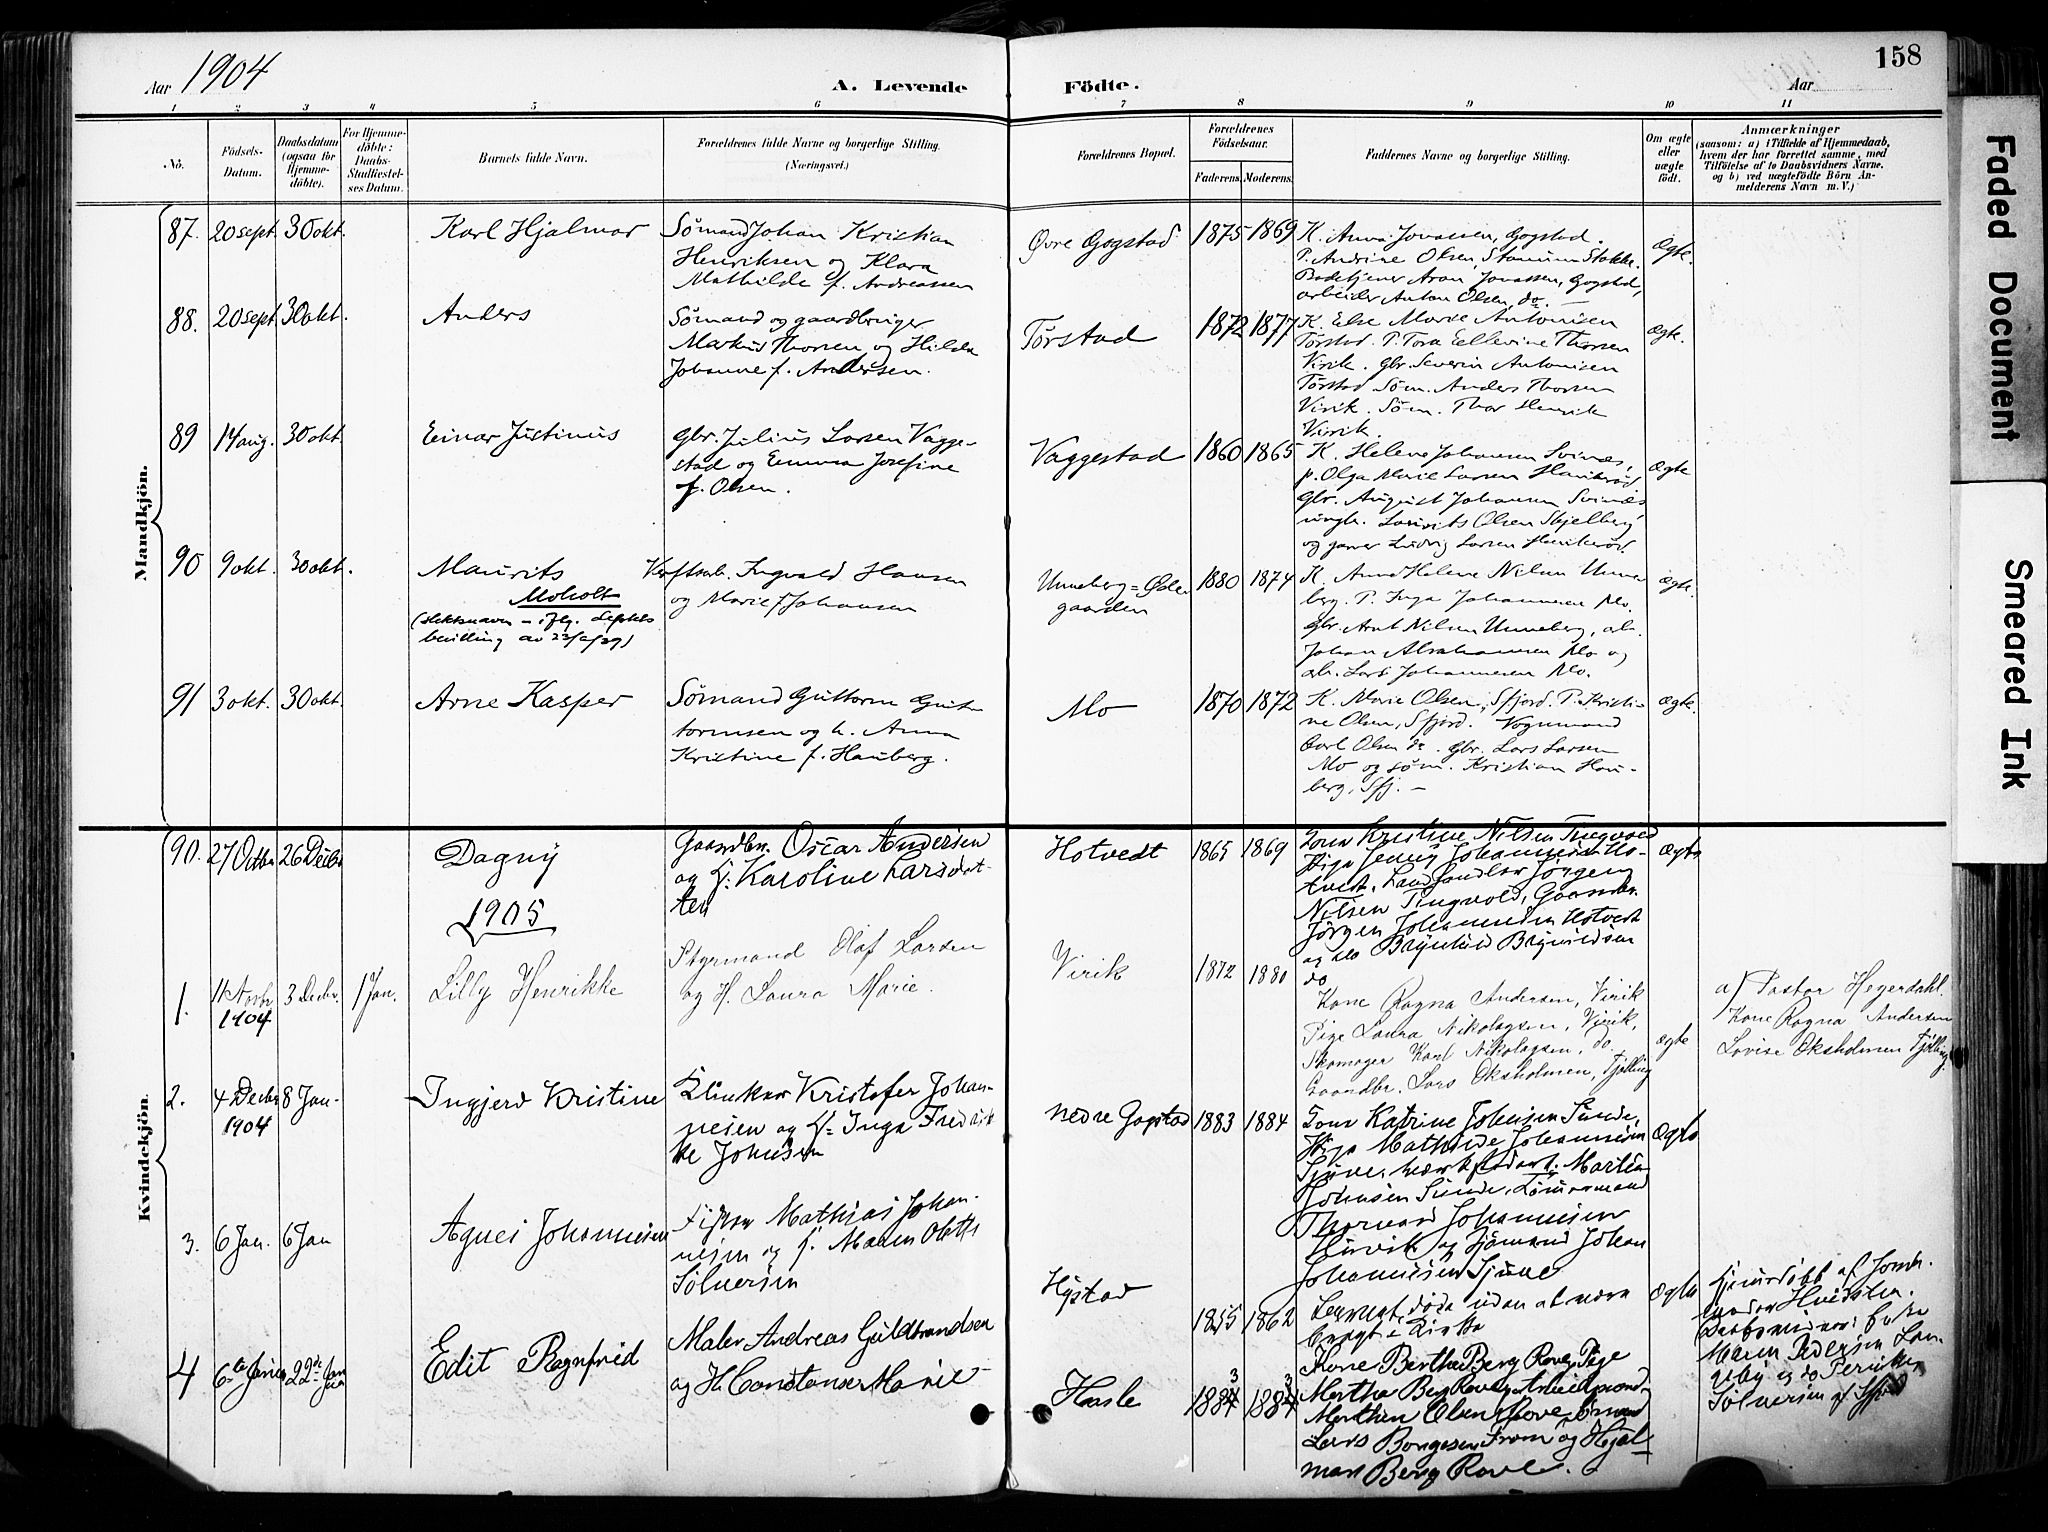 158
Aar 1904
A. Levende Födte.
Aar
1 2 3 4 5 6 7 8 9 10 11
Nò.
Födsels-Datum.
Daabsdatum (ogsaa for Hjemme-döbte).
For Hjemme-döbte: Daabs-Stadfæstelses Datum.
Barnets fulde Navn.
Forældrenes fulde Navne og borgerlige Stilling. (Næringsvei.)
Forældrenes Bopæl.
Forældrenes Födselsaar.
Faderens. Moderens.
Faddernes Navne og borgerlige Stilling.
Om ægte eller uægte födt.
Anmærkninger
(saasom: a) i Tilfælde af Hjemmedaab, hvem der har forrettet samme, med Tilföielse af to Daabsvidners Navne. og b) ved uægtefödte Börn Anmelderens Navn m. V.)
Mandkjön.
87. 20 sept. 30 okt. Karl Hjalmar
Sømand Johan Kristian
Henriksen og Klara
Mathilde f. Andreassen
Øvre Gogstad 1875 1869
K. Anna Jonassen, Gogstad.
P. Andrine Olsen, Stokke.
Badetjener Aron Jonassen, Gogstad,
arbeider Anton Olsen, do.
Ægte.
88. 20 sept. 30 okt. Anders
Sømand og gaardbruger
Markus Thorsen og Hilda
Johanne f. Andersen.
Tørstad 1872 1877
K. Else Marie Antonisen
Tørstad. P. Tora Ellevine Thorsen
Virik. Gbr. Severin Antonisen
Tørstad. Søm. Anders Thorsen
Virik. Søm. Thor Henrik
Virik.
Ægte.
89 14 aug. 30 okt. Einar Justinus
Gbr. Julius Larsen Vagge-
stad og Emma Josefine
f. Olsen.
Vaggestad 1860 1865
K. Helene Johansen Svinæs,
p. Olga Marie Larsen Haukerød
Gbr. August Johansen Svinæs
ungk. Laurits Olsen Skjelberg
og garver Ludvig Larsen Haukerød.
Ægte
90 9 okt. 30 okt. Maurits
Moholt
(slektsnavn – iflg.
bevilling av 23/
Ingvald Hansen
og Marie f. Johansen
Unneberg = Østen
gaarden
1880 1874
K. Anna Helene Nilsen Unne-
berg. P. Inga Johannesen Mo.
Gbr. Arnt Nilsen Unneberg, arb.
Johan Abrahamsen Mo og
arb. Lars Johannesen Mo.
Ægte.
91 3 okt. 30 okt. Arne Kasper
Sømand Guttorm Gut-
tormsen og h. Anna
Kristine f. Hauberg.
Mo 1870 1872
K. Marie Olsen, Sfjord. P. Kristi-
ne Olsen, Sfjord. Vognmand
Carl Olsen do. Gbr. Lars Larsen
Mo og søm. Kristian Hau-
berg, Sfj. –
Ægte.
Kvindekjön.
90. 27 Octbr. 26 Decbr. Dagny
Gaardbr. Oscar Andersen
og H. Karoline Larsdat-
ter
Hotvedt 1865 1869
Kone Kristine Nilsen Tingvold
Pige Jenny Johannesen Ho-
tvedt. Landhandler Jørgen
Nilsen Tingvold, Gaardbr.
Jørgen Johannesen Hotvedt
og do Brynhild Brynildsen
do
Ægte
1905
1. 11 Novbr 1904 3 Decbr. 1 Jan. Lilly Henrikke
Styrmand Olaf Larsen
og H. Laura Marie.
Virik 1872 1880
Kone Ragna Andersen, Virik
Pige Laura Nikolaysen, Virik,
Skomager Karl Nikolaysen, do.
Gaardbr. Lars Oksholmen, Tjølling
Ægte
a) Pastor Heyerdahl.
Kone Ragna Andersen
Lovise Oksholmen Tjølling.
2. 4 Decbr 1904 8 Jan. Ingjerd Kristine
Klinker Kristofer Johan-
nesen og H: Inga Fredrik-
ke Johnsen
nedre Gogstad 1883 1884
Kone Katrine Johnsen Sunde,
Pige Mathilde Johannesen
Sjuve, værkstedarb. Martin
Johnsen Sunde, Tømmermand
Thorvard Johannesen
og Sjømand Johan
Johannesen Sjuve
Ægte
3. 6 Jan. 6 Jan Agnes Johannesen
Fisker Mathias Johan-
nesen og H. Maren Olette
Sølversen
Hystad 1855 1862
døde uden at være
bragt i Kirke
Ægte
Hjemdøbt af Jordm.
Daabsvidner:
Maren Pedersen Lan-
geby og do
Sølversen af Sfjord
4 6te Januar 22de Januar Edit Ragnfrid
Maler Andreas Guldbrandsen
og H. Constanse Marie
Hasle 1884 3 1884 3
Kone Berthe Berg Rove, Pige
Martha Berg Rove, Arbeidsmand
Marthin Olsen Rove, Sømand
Lars Borgesen Fram og Hjal-
mar Berg Rove.
Faded Document
Smeared Ink